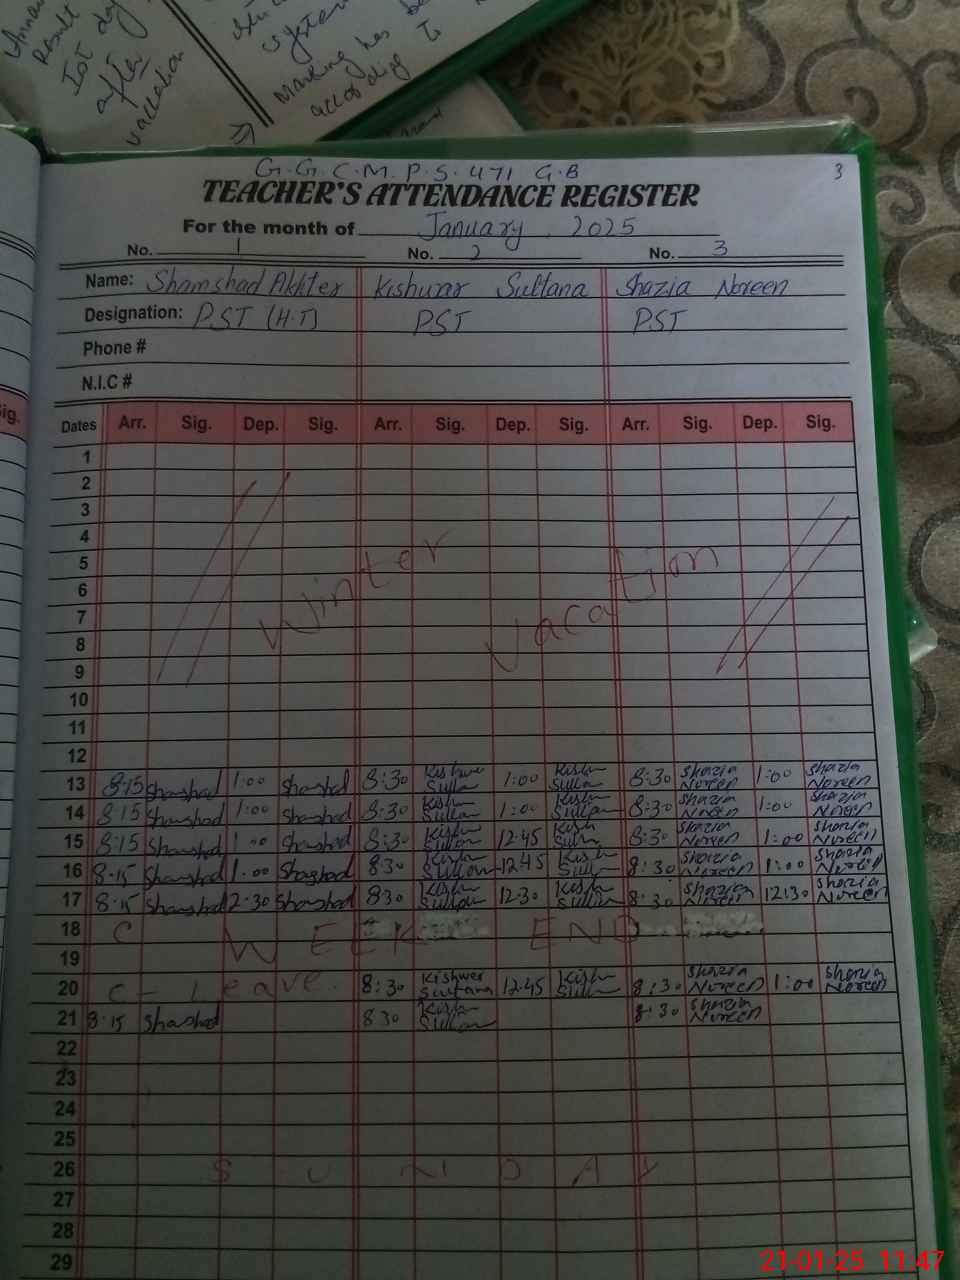 Result
IoT day
after
vaccation
system
Marking has
acc of ding to
G.G.C.M.P.S. 471 G.B
3
TEACHER'S ATTENDANCE REGISTER
For the month of January, 2025
No. 1 No. 2 No. 3
Name: Shamshad Akhter Kishwar Sultana Shazia Noreen
Designation: PST (H.T) PST PST
Phone #
N.I.C #
Sig.
Dates Arr. Sig. Dep. Sig. Arr. Sig. Dep. Sig. Arr. Sig. Dep. Sig.
1
2
3
4
5
6
7
8
9
10
11
12
Winter Vacation
13 8:15 Shamshad 1:00 Shamshad 8:30 Kishwar Sultan 1:00 Kishwar Sultan 8:30 Shazia Noreen 1:00 Shazia Noreen
14 8:15 Shamshad 1:00 Shamshad 8:30 Kishwar Sultan 1:00 Kishwar Sultan 8:30 Shazia Noreen 1:00 Shazia Noreen
15 8:15 Shamshad 1:00 Shamshad 8:30 Kishwar Sultan 12:45 Kishwar Sultan 8:30 Shazia Noreen 1:00 Shazia Noreen
16 8:15 Shamshad 1:00 Shamshad 830 Kishwar Sultan 12:45 Kishwar Sultan 8:30 Shazia Noreen 1:00 Shazia Noreen
17 8:15 Shamshad 12:30 Shamshad 830 Kishwar Sultan 12:30 Kishwar Sultan 8:30 Shazia Noreen 12:30 Shazia Noreen
18 C WEEK END
19
20 C - Leave. 8:30 Kishwer Sultana 12:45 Kishwar Sultan 8:30 Shazia Noreen 1:00 Shazia Noreen
21 8:15 Shamshad 830 Kishwar Sultan 8:30 Shazia Noreen
22
23
24
25
26 SUNDAY
27
28
29
21-01-25 11:47